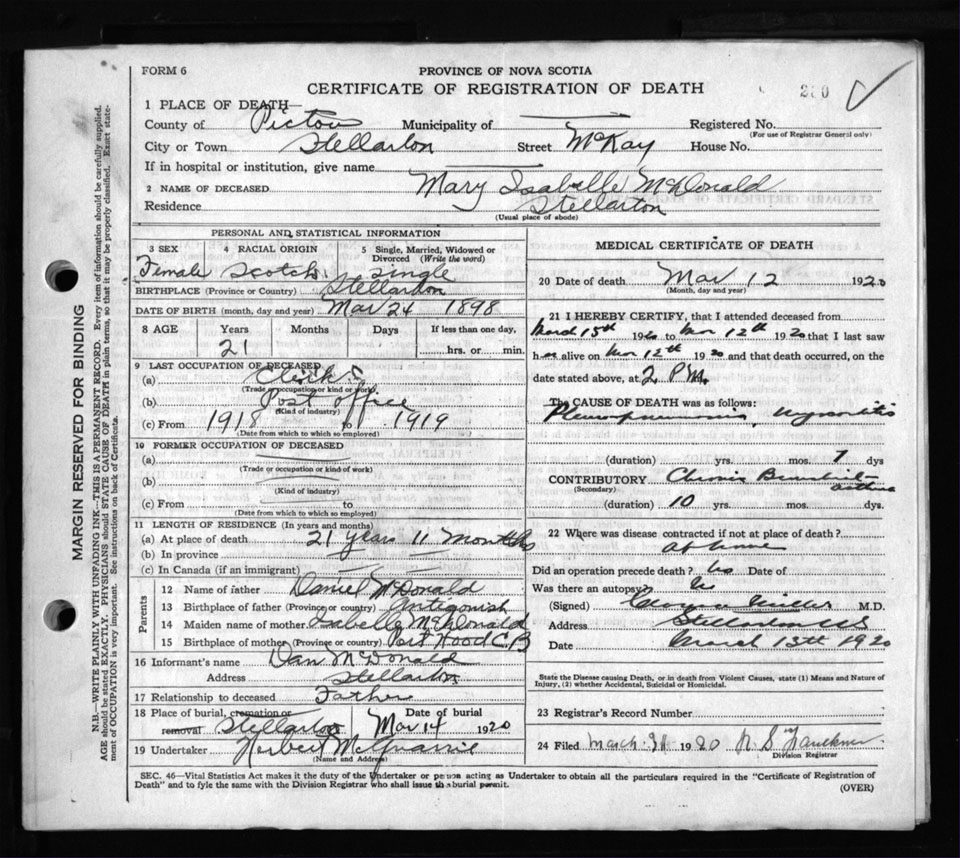 FORM 6
PROVINCE OF NOVA SCOTIA
CERTIFICATE OF REGISTRATION OF DEATH
1 PLACE OF DEATH—
County of Pictou Municipality of Registered No.
(For use of Registrar General only)
City or Town Stellarton Street McKay House No.
If in hospital or institution, give name
2 NAME OF DECEASED Mary Isabelle McDonald
Residence Stellarton
(Usual place of abode)
PERSONAL AND STATISTICAL INFORMATION
3 SEX 4 RACIAL ORIGIN 5 Single, Married, Widowed or Divorced (Write the word)
Female Scotch Single
BIRTHPLACE (Province or Country) Stellarton
DATE OF BIRTH (month, day and year) Mar 24 1898
8 AGE Years Months Days If less than one day,
21 hrs. or min.
9 LAST OCCUPATION OF DECEASED
(a) Clerk
(Trade or occupation or kind of work)
(b) Post Office
(Kind of industry)
(c) From 1918 to 1919
(Date from which to which so employed)
10 FORMER OCCUPATION OF DECEASED
(a)
(Trade or occupation or kind of work)
(b)
(Kind of industry)
(c) From to
(Date from which to which so employed)
11 LENGTH OF RESIDENCE (In years and months)
(a) At place of death 21 years 11 Months
(b) In province
(c) In Canada (if an immigrant)
Parents
12 Name of father Daniel McDonald
13 Birthplace of father (Province or country) Antigonish
14 Maiden name of mother Isabelle McDonald
15 Birthplace of mother (Province or country) Port Hood C.B
16 Informant's name Dan McDonald
Address Stellarton
17 Relationship to deceased Father
18 Place of burial, cremation or removal Date of burial
Stellarton Mar 14 1920
19 Undertaker Herbert
(Name and Address)
MEDICAL CERTIFICATE OF DEATH
20 Date of death Mar 12 1920
(Month, day and year)
21 I HEREBY CERTIFY, that I attended deceased from
March 1920 to Mar 12th 1920 that I last saw
h alive on Mar 12th 1920 and that death occurred, on the
date stated above, at 2 P.M.
The CAUSE OF DEATH was as follows:
Pleuropneumonia,
(duration) yrs. mos. 7 dys
CONTRIBUTORY Chronic
(Secondary)
(duration) 10 yrs. mos. dys
22 Where was disease contracted if not at place of death?
at home
Did an operation precede death? No Date of
Was there an autopsy? No
(Signed) M.D.
Address Stellarton
Date March 13th 1920
State the Disease causing Death, or in death from Violent Causes, state (1) Means and Nature of
Injury, (2) whether Accidental, Suicidal or Homicidal.
23 Registrar's Record Number
24 Filed March 31 1920 Faulkner
Division Registrar
SEC. 46—Vital Statistics Act makes it the duty of the Undertaker or person acting as Undertaker to obtain all the particulars required in the "Certificate of Registration of
Death" and to fyle the same with the Division Registrar who shall issue the burial permit.
(OVER)
MARGIN RESERVED FOR BINDING
N.B.—WRITE PLAINLY WITH UNFADING INK—THIS IS A PERMANENT RECORD. Every item of information should be carefully supplied.
AGE should be stated EXACTLY. PHYSICIANS should STATE CAUSE OF DEATH in plain terms, so that it may be properly classified. Exact state-
ment of OCCUPATION is very important. See instructions on back of Certificate.